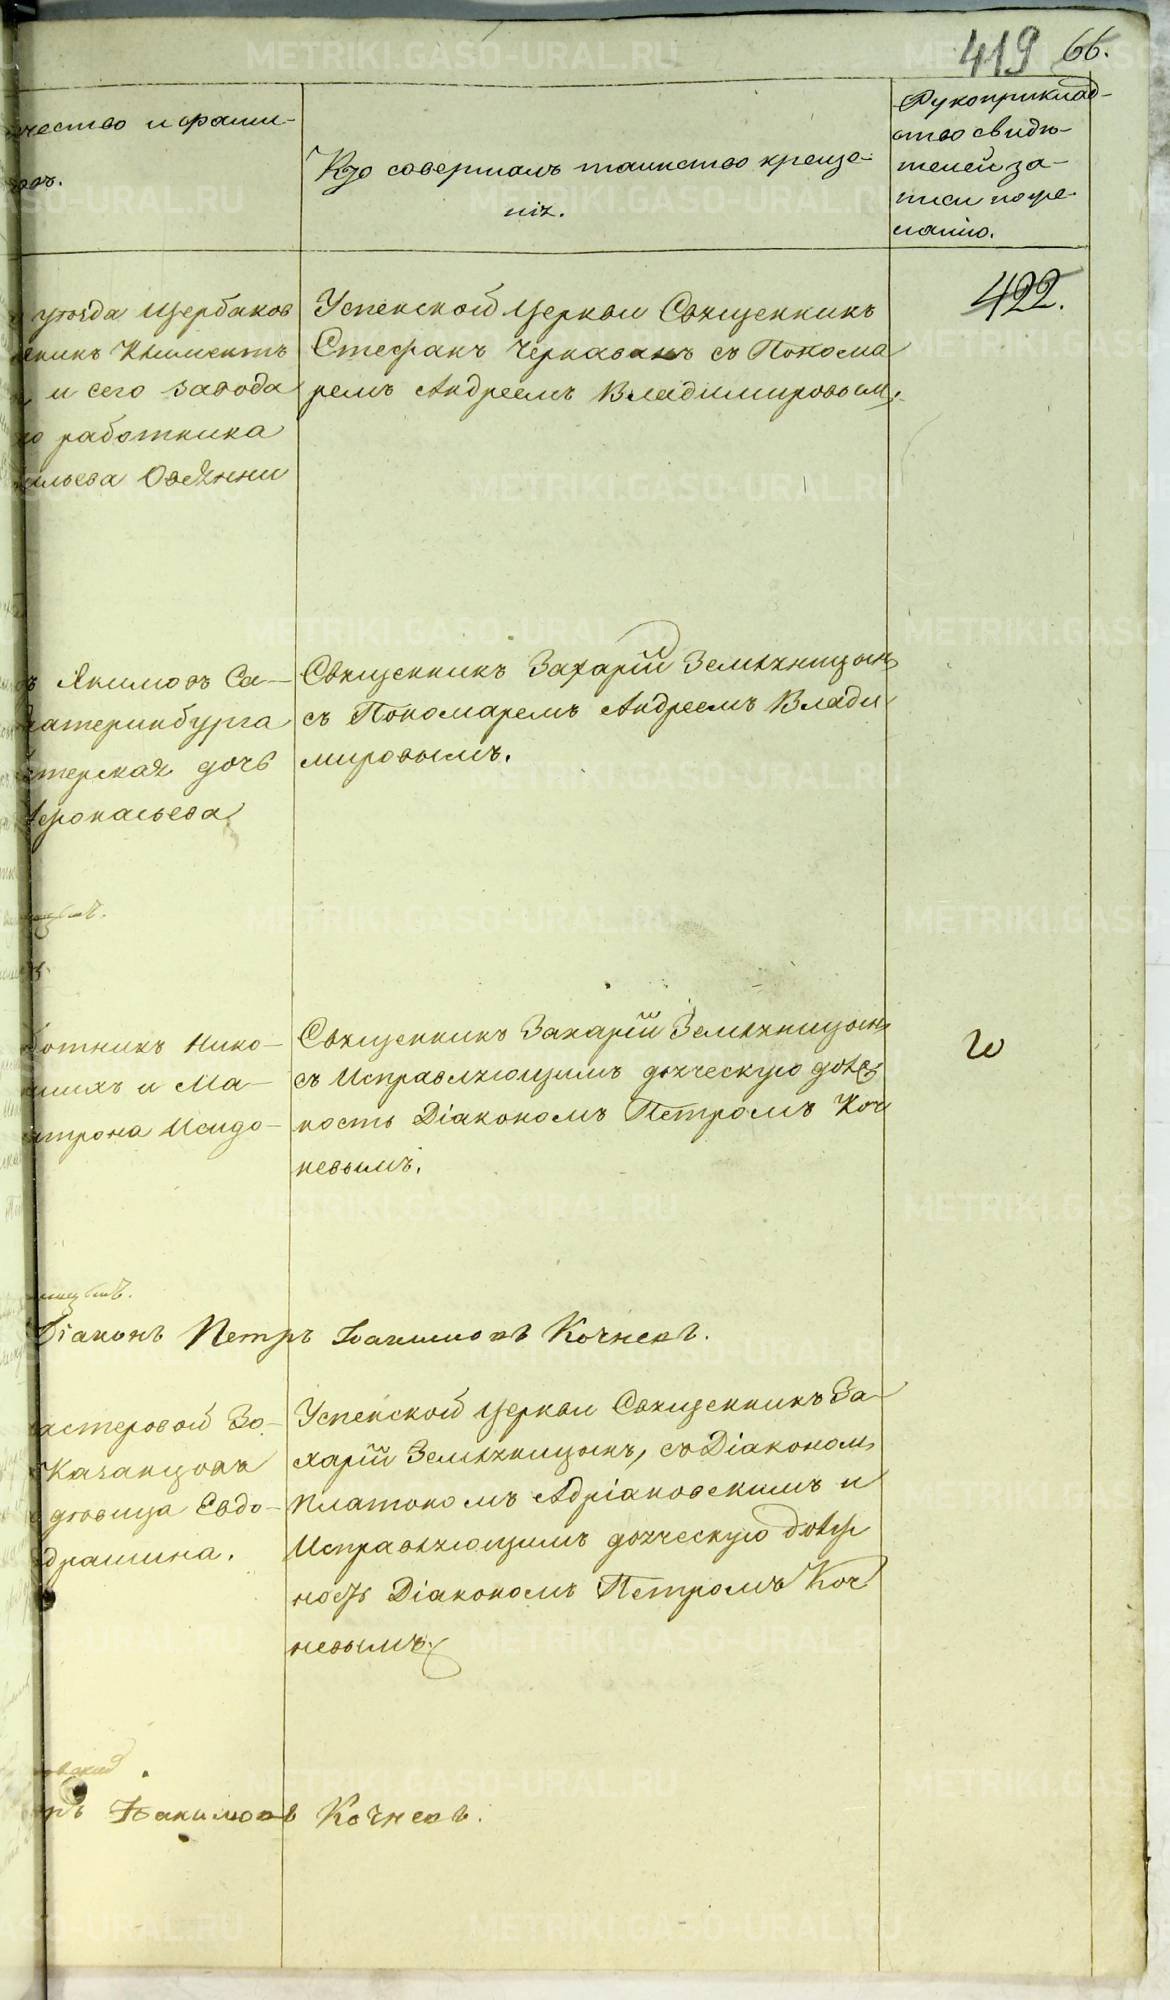 419 66.
чество и фами-
Кто совершалъ таинство креще-
нія.
Рукоприклад-
ство свидѣ-
телей за-
писи по же-
ланію.
422.
уѣзда Щербаков
Климентъ
и сего завода
работника
Овсянни
Успенской Церкви Священникъ
Стефанъ Черкасовъ съ Понома
ремъ Андреемъ Владимировым,
Якимовъ Са-
катеринбурга
стерская дочь
Афонасьева
Священникъ Захарій Земляницынъ
съ Пономаремъ Андреемъ Влади
мировымъ.
ботникъ Нико-
и Ма-
трона Исидо-
Священникъ Захарій Земляницынъ
съ Исправляющимъ дьяческую долж
ность Діакономъ Петромъ Коч
невымъ.
Діаконъ Петръ Іоакимовъ Кочневъ.
астеровой Зо-
Казанцовъ
дѣвица Евдо-
драшина.
Успенской Церкви Священникъ За-
харій Земляницынъ, съ Діаконом
Платономъ Адріановскимъ и
Исправляющимъ дьяческую долж
ность Діакономъ Петромъ Коч
невымъ.
Іоакимовъ Кочневъ.
METRIKI.GASO-URAL.RU